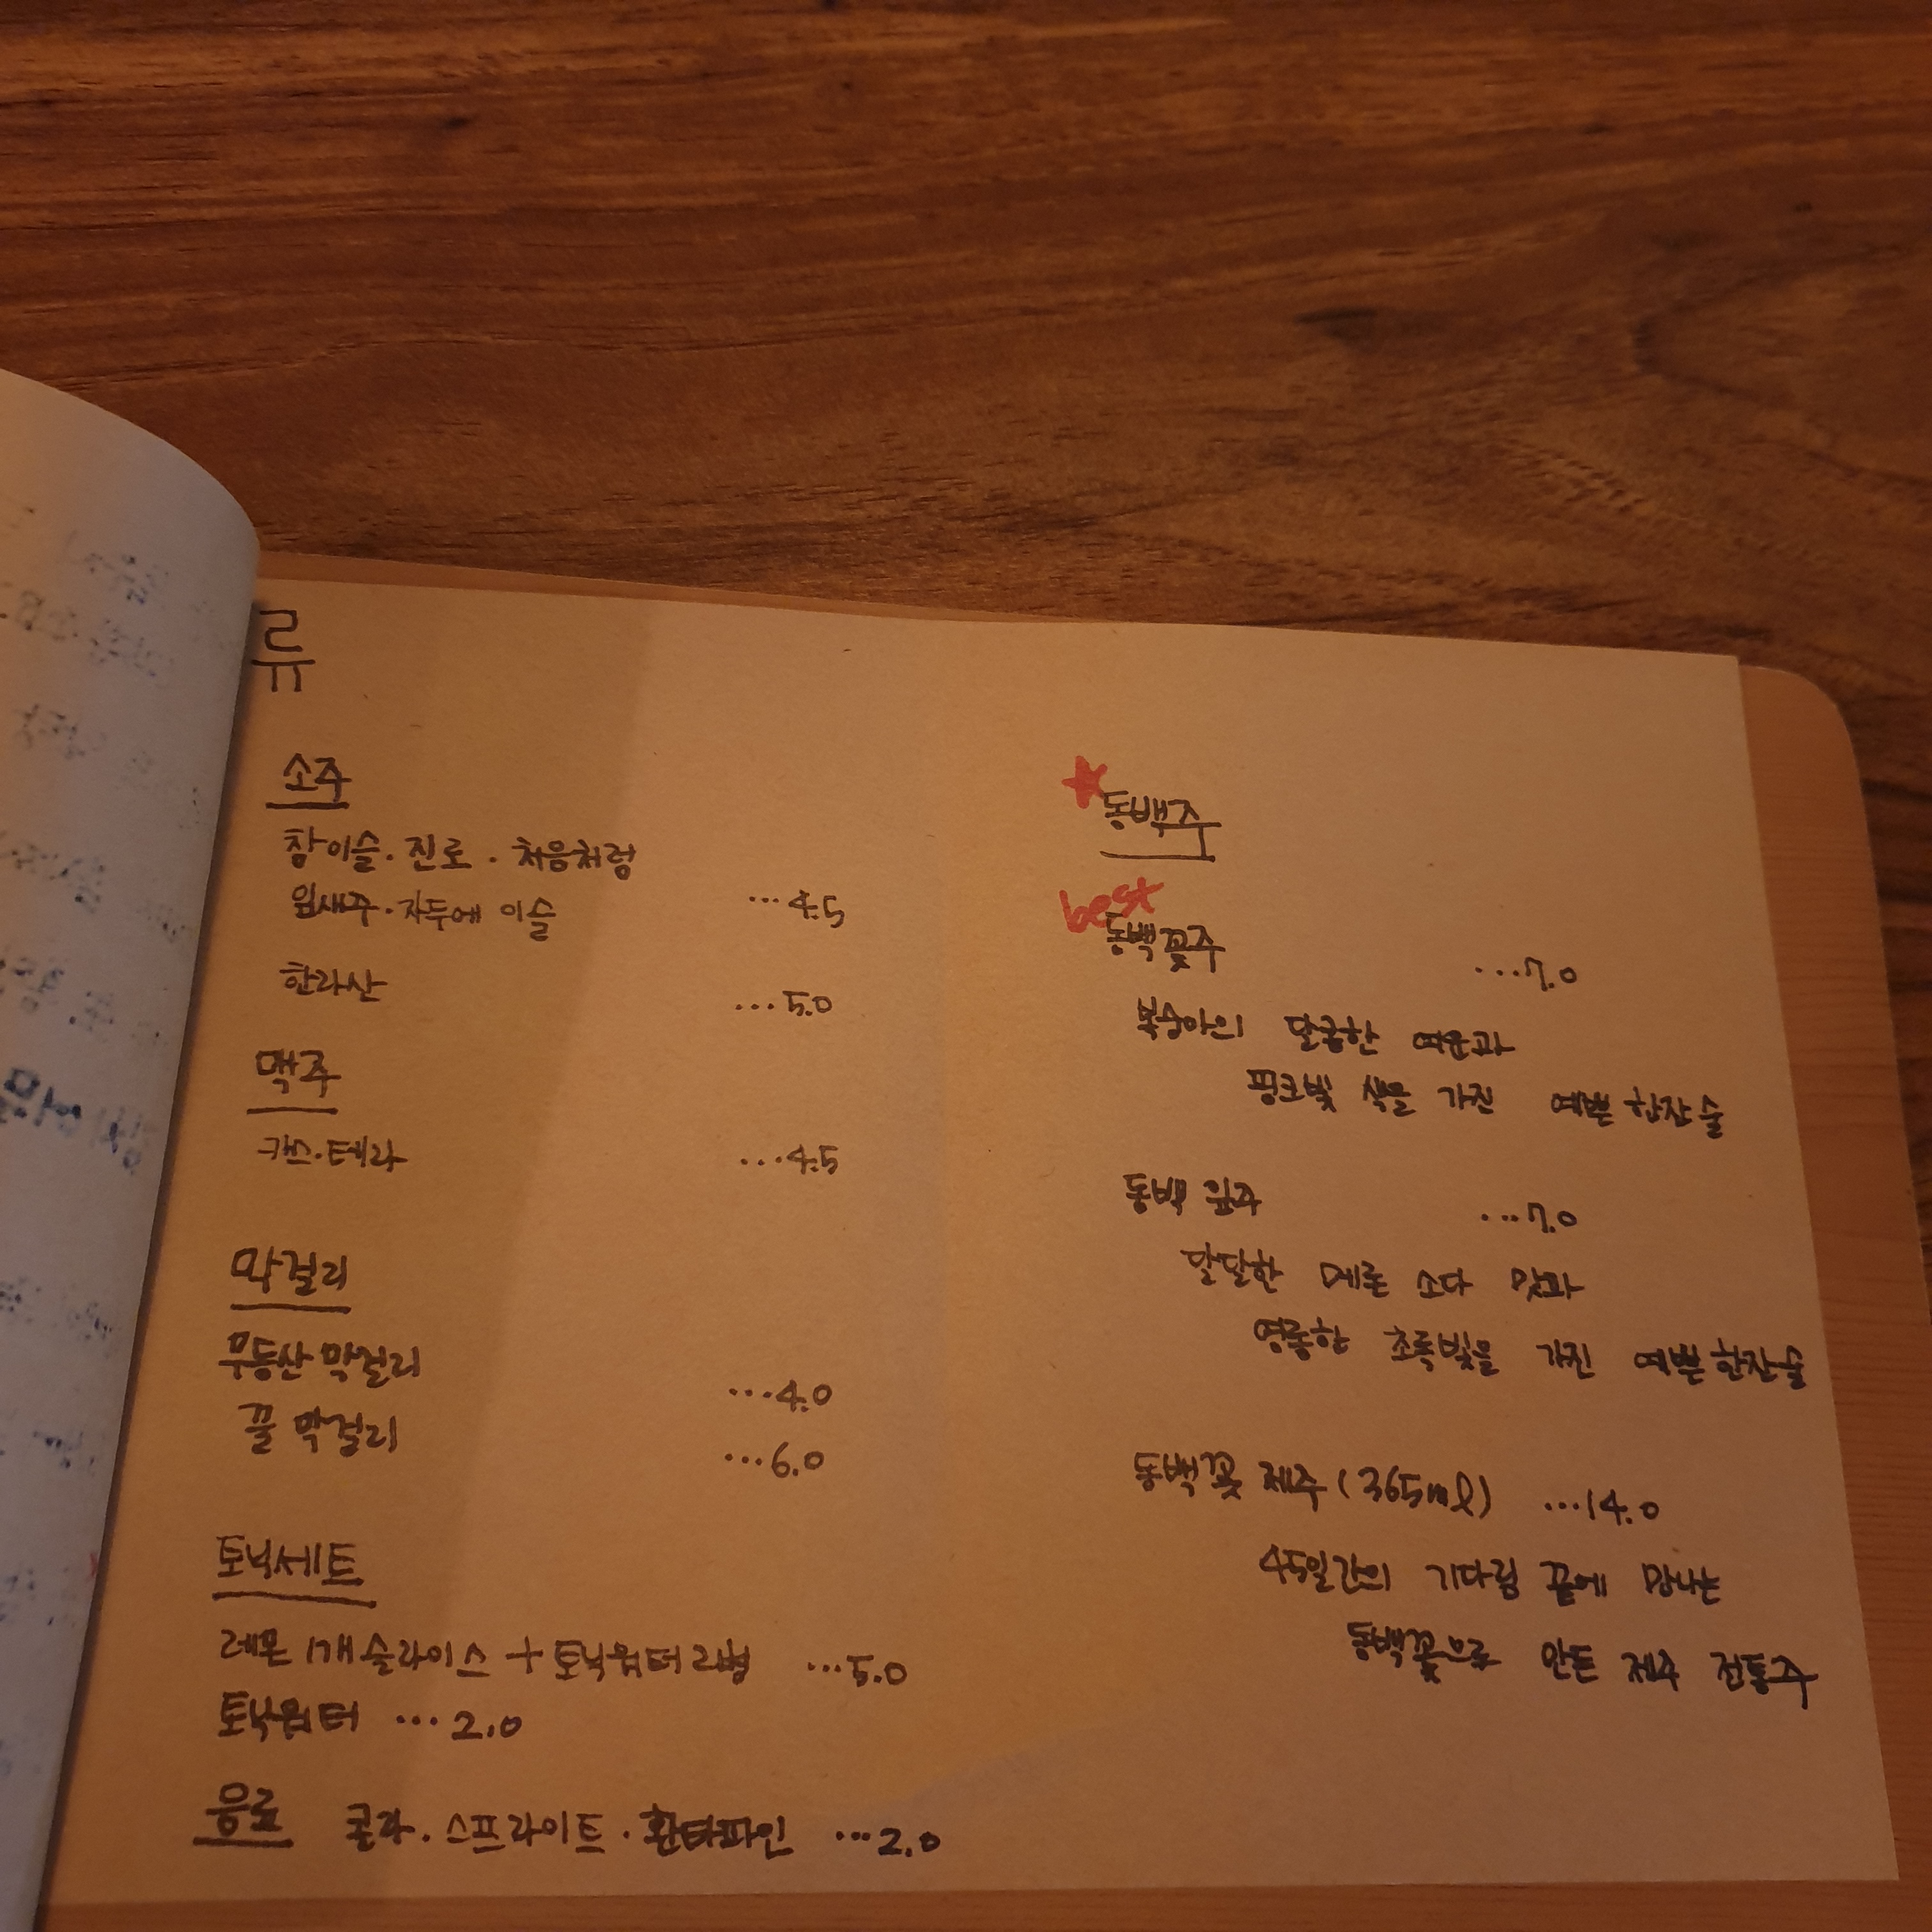 류
소주
참이슬 · 진로 · 처음처럼
잎새주 · 자두에 이슬 ...4.5
한라산 ...5.0
맥주
카스 · 테라 ...4.5
막걸리
무등산 막걸리 ...4.0
꿀 막걸리 ...6.0
토닉세트
레몬 1개 슬라이스 + 토닉워터 2병 ...5.0
토닉워터 ...2.0
음료 콜라 · 스프라이트 · 환타파인 ...2.0
★동백주
best
동백꽃주 ...7.0
복숭아의 달콤한 여운과
핑크빛 색을 가진 예쁜 한잔 술
동백 잎주 ...7.0
달달한 메론 소다 맛과
영롱한 초록빛을 가진 예쁜 한잔 술
동백꽃 제주 (365ml) ...14.0
45일간의 기다림 끝에 만나는
동백꽃으로 만든 제주 전통주